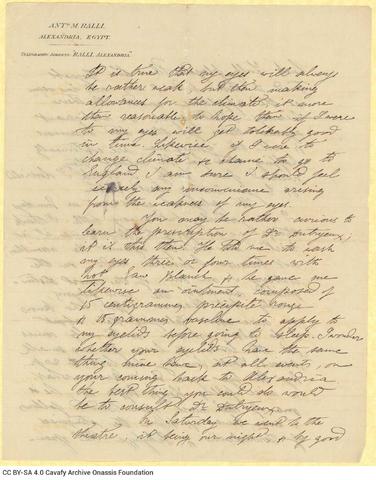 ANTᴺ M. RALLI.
ALEXANDRIA, EGYPT.
TELEGRAPHIC ADDRESS: "RALLI, ALEXANDRIA"
It is true that my eyes will always
be rather weak, but then making
allowances for the climate, it more
than reasonable to hope that if I were
to my eyes will get tolerably good
in time. Likewise if I were to
change climate & chance to go to
England I am sure I should feel
scarcely any inconvenience arising
from the weakness of my eyes.
You may be rather curious to
learn the prescription of Dr
it is this then. He told me to wash
my eyes three or four times with
hot Eau Blanche & he gave me
likewise an ointment composed of
15 centigrammes précipité rouge
& 15 grammes vaseline to apply to
my eyelids before going to sleep. I wonder
whether your eyelids have the same
thing mine have; at all events, on
your coming back to Alexandria
the best thing you could do would
be to consult Dr
On Saturday we went to the
theatre; it being our night, & by good
CC BY-SA 4.0 Cavafy Archive Onassis Foundation